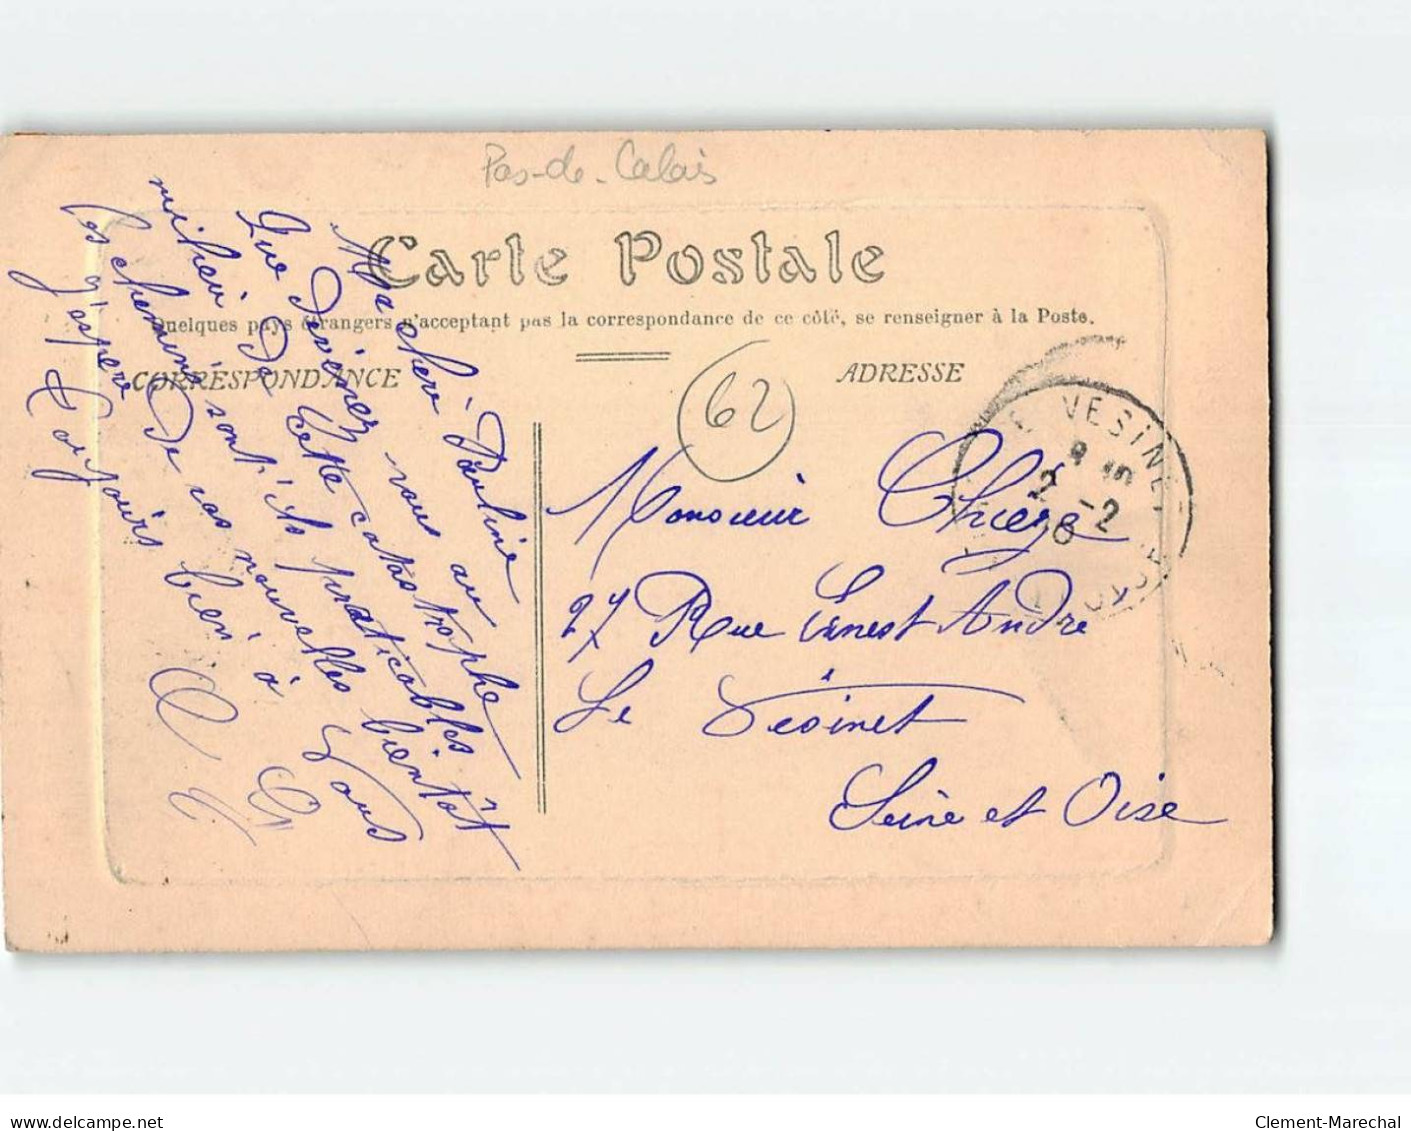 Pas-de-Calais
Carte Postale
Quelques pays étrangers n'acceptant pas la correspondance de ce côté, se renseigner à la Poste.
CORRESPONDANCE
ADRESSE
62
Ma chère Pauline
Que devenez vous au
milieu de cette catastrophe
les chemins sont'ils praticables bientôt
j'espère De vos nouvelles
Toujours bien à Vous
LE VESINET
8 15
2 -2
10
Monsieur Chièze
27 Rue Ernest André
Le Vésinet
Seine et Oise
delcampe.net
Clement-Marechal